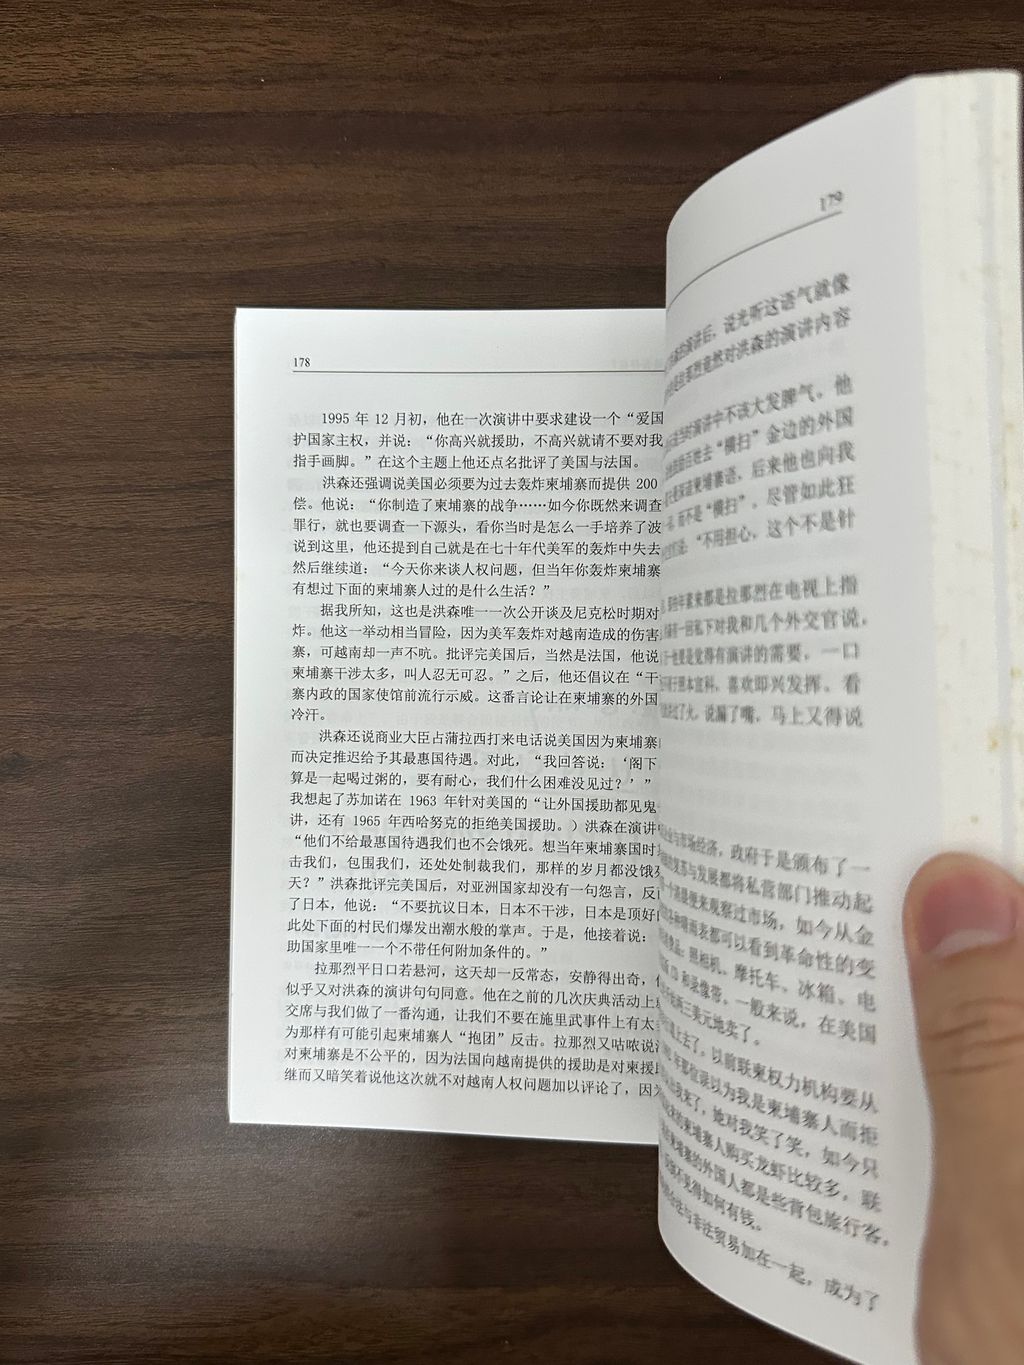 178
1995 年 12 月初，他在一次演讲中要求建设一个“爱国
护国家主权，并说：“你高兴就援助，不高兴就请不要对我
指手画脚。”在这个主题上他还点名批评了美国与法国。
洪森还强调说美国必须要为过去轰炸柬埔寨而提供 200
偿。他说：“你制造了柬埔寨的战争……如今你既然来调查
罪行，就也要调查一下源头，看你当时是怎么一手培养了波
说到这里，他还提到自己就是在七十年代美军的轰炸中失去
然后继续道：“今天你来谈人权问题，但当年你轰炸柬埔寨
有想过下面的柬埔寨人过的是什么生活？”
据我所知，这也是洪森唯一一次公开谈及尼克松时期对
炸。他这一举动相当冒险，因为美军轰炸对越南造成的伤害
寨，可越南却一声不吭。批评完美国后，当然是法国，他说
柬埔寨干涉太多，叫人忍无可忍。”之后，他还倡议在“干
寨内政的国家使馆前流行示威。这番言论让在柬埔寨的外国
冷汗。
洪森还说商业大臣占蒲拉西打来电话说美国因为柬埔寨
而决定推迟给予其最惠国待遇。对此，“我回答说：‘阁下
算是一起喝过粥的，要有耐心，我们什么困难没见过？’”
我想起了苏加诺在 1963 年针对美国的“让外国援助都见鬼
讲，还有 1965 年西哈努克的拒绝美国援助。）洪森在演讲
“他们不给最惠国待遇我们也不会饿死。想当年柬埔寨国时
击我们，包围我们，还处处制裁我们，那样的岁月都没饿死
天？”洪森批评完美国后，对亚洲国家却没有一句怨言，反
了日本，他说：“不要抗议日本，日本不干涉，日本是顶好
此处下面的村民们爆发出潮水般的掌声。于是，他接着说：
助国家里唯一一个不带任何附加条件的。”
拉那烈平日口若悬河，这天却一反常态，安静得出奇，
似乎又对洪森的演讲句句同意。他在之前的几次庆典活动上
交席与我们做了一番沟通，让我们不要在施里武事件上有太
为那样有可能引起柬埔寨人“抱团”反击。拉那烈又咕哝说
对柬埔寨是不公平的，因为法国向越南提供的援助是对柬援
继而又暗笑着说他这次就不对越南人权问题加以评论了，因为
179
的演讲后，说光听这语气就像
拉那烈竟然对洪森的演讲内容
演讲中不该大发脾气。他
百姓去“横扫”金边的外国
柬埔寨语，后来他也向我
而不是“横扫”。尽管如此狂
“不用担心，这个不是针
年来都是拉那烈在电视上指
有一回私下对我和几个外交官说，
他更是觉得有演讲的需要，一口
照本宣科，喜欢即兴发挥。看
过了火，说漏了嘴，马上又得说
与市场经济，政府于是颁布了一
发展都将私营部门推动起
便来观察过市场，如今从金
都可以看到革命性的变
照相机、摩托车、冰箱、电
和录像带。一般来说，在美国
两三美元地卖了。
上去了。以前联柬权力机构要从
年那位误以为我是柬埔寨人而拒
我来了，她对我笑了笑，如今只
的柬埔寨人购买龙虾比较多。联
柬埔寨的外国人都是些背包旅行客，
不见得如何有钱。
与非法贸易加在一起，成为了